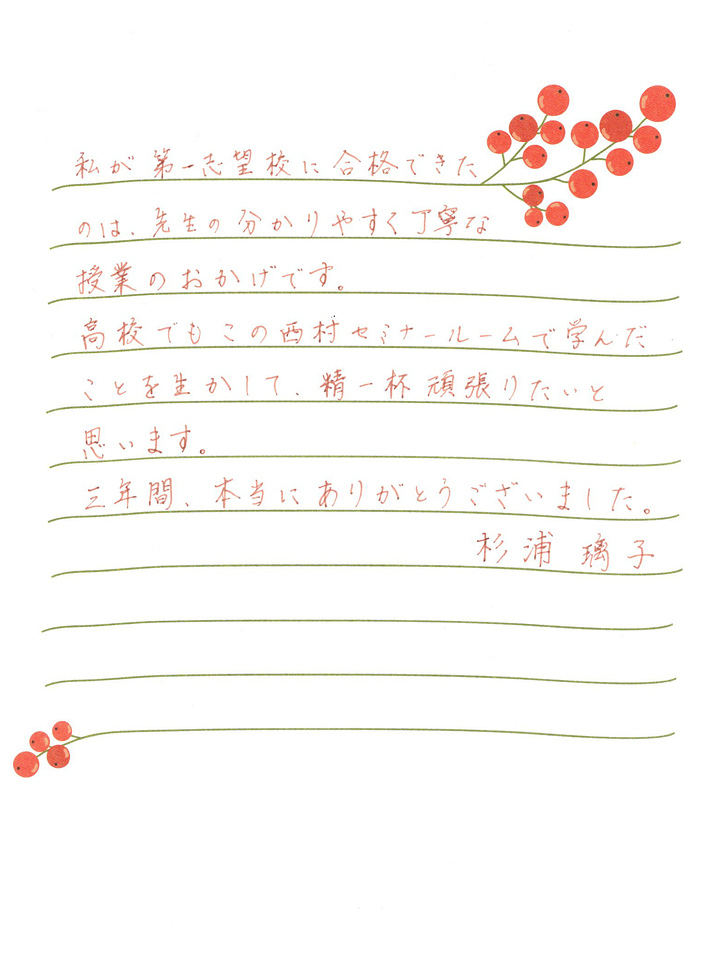 私が第一志望校に合格できた
のは、先生の分かりやすく丁寧な
授業のおかげです。
高校でもこの西村セミナールームで学んだ
ことを生かして、精一杯頑張りたいと
思います。
三年間、本当にありがとうございました。
杉浦 璃子